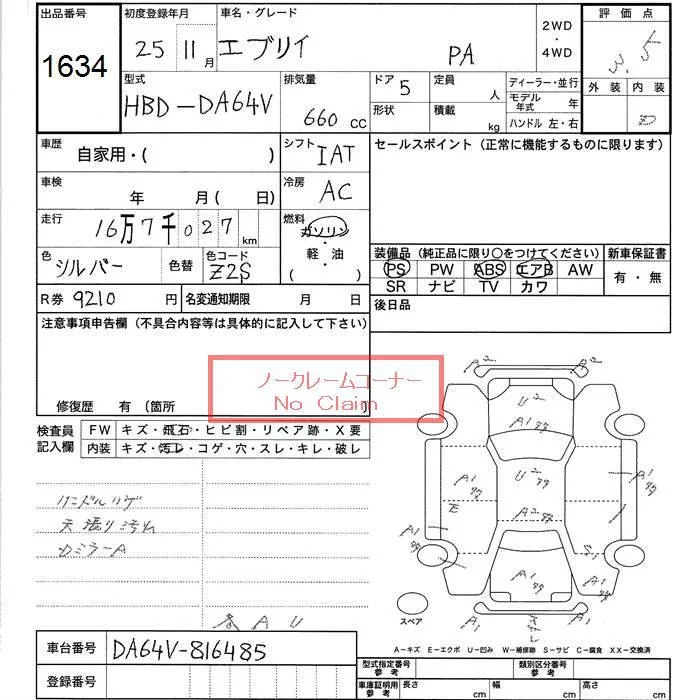 出品番号 初度登録年月 車名・グレード 2WD・4WD 評価点
1634 25 11月 エブリイ PA 3.5
型式 排気量 ドア 5 定員 人 ディーラー・並行 外装 内装
HBD-DA64V 660 cc 形状 積載 kg モデル年式 年 D
ハンドル 左・右
車歴 自家用・( ) シフト IAT セールスポイント(正常に機能するものに限ります)
車検 年 月( 日) 冷房 AC
走行 16万7千027km 燃料 ガソリン・軽油・( )
色 シルバー 色替 色コード Z2S
装備品(純正品に限り○をつけてください) 新車保証書
PS PW ABS エアB AW 有・無
SR ナビ TV カワ
R券 9210円 名変通知期限 月 日 後日品
注意事項申告欄(不具合内容等は具体的に記入して下さい)
ノークレームコーナー
No Claim
修復歴 有(箇所
検査員記入欄 FW キズ・飛石・ヒビ割・リペア跡・X要
内装 キズ・汚レ・コゲ・穴・スレ・キレ・破レ
ハンドルハゲ
天張り汚れ
カミラーA
各AU
P2 P2
U2
A1 キキ
A1 キキ U2 キキ A1 キキ
E
A1 キキ A2 キキ
A1 キキ S A1 キキ
スペア P1 P1
A-キズ E-エクボ U-凹み W-補修跡 S-サビ C-腐食 XX-交換済
車台番号 DA64V-816485
登録番号
型式指定番号 参考 類別区分番号 参考
車庫証明用 参考 長さ cm 幅 cm 高さ cm